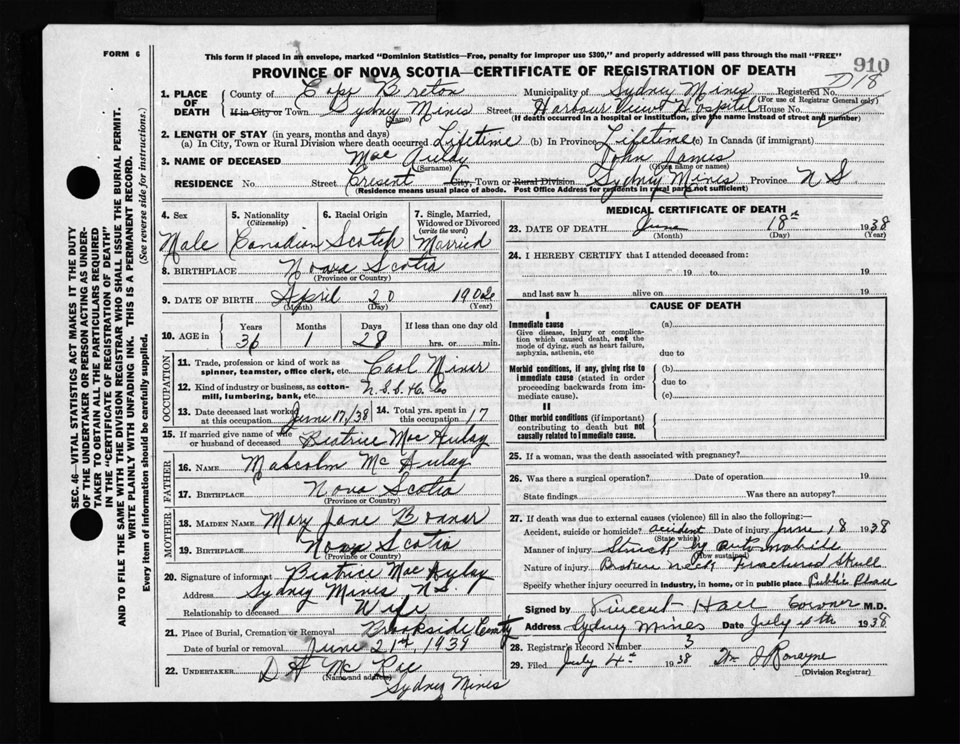 FORM 6
This form if placed in an envelope, marked "Dominion Statistics—Free, penalty for improper use $300," and properly addressed will pass through the mail "FREE"
910
PROVINCE OF NOVA SCOTIA—CERTIFICATE OF REGISTRATION OF DEATH
D18
1. PLACE OF DEATH County of Cape Breton Municipality of Sydney Mines Registered No.
(For use of Registrar General only)
If in City or Town Sydney Mines (Name) Street Harbour View Hospital House No.
(If death occurred in a hospital or institution, give the name instead of street and number)
2. LENGTH OF STAY (in years, months and days)
(a) In City, Town or Rural Division where death occurred Lifetime (b) In Province Lifetime (c) In Canada (if immigrant)
3. NAME OF DECEASED Mac Aulay (Surname) John James (Given name or names)
RESIDENCE No. Street Cresent City, Town or Rural Division Sydney Mines Province N S.
(Residence means usual place of abode. Post Office Address for residents in rural parts not sufficient)
4. Sex Male
5. Nationality (Citizenship) Canadian
6. Racial Origin Scotch
7. Single, Married, Widowed or Divorced (write the word) Married
8. BIRTHPLACE Nova Scotia
(Province or Country)
9. DATE OF BIRTH April 20 1902
(Month) (Day) (Year)
10. AGE in Years 36 Months 1 Days 28 If less than one day old hrs. or min.
OCCUPATION
11. Trade, profession or kind of work as spinner, teamster, office clerk, etc. Coal Miner
12. Kind of industry or business, as cotton-mill, lumbering, bank, etc. N.S.S. & C. Co
13. Date deceased last worked at this occupation June 17/38 14. Total yrs. spent in this occupation 17
15. If married give name of wife or husband of deceased Beatrice Mac Aulay
FATHER
16. NAME Malcolm Mc Aulay
17. BIRTHPLACE Nova Scotia
(Province or Country)
MOTHER
18. MAIDEN NAME Mary Jane Bonner
19. BIRTHPLACE Nova Scotia
(Province or Country)
20. Signature of informant Beatrice Mac Aulay
Address Sydney Mines N.S.
Relationship to deceased Wife
21. Place of Burial, Cremation or Removal Brookside Cemty
Date of burial or removal June 21st, 1938
22. UNDERTAKER D A Mc Rae
(Name and address)
Sydney Mines
MEDICAL CERTIFICATE OF DEATH
23. DATE OF DEATH June 18th 1938
(Month) (Day) (Year)
24. I HEREBY CERTIFY that I attended deceased from:
19 to 19
and last saw h alive on 19
CAUSE OF DEATH
I
Immediate cause (a)
Give disease, injury or complication which caused death, not the mode of dying, such as heart failure, asphyxia, asthenia, etc due to
Morbid conditions, if any, giving rise to immediate cause (stated in order proceeding backwards from immediate cause). (b)
due to
(c)
II
Other morbid conditions (if important) contributing to death but not causally related to immediate cause.
25. If a woman, was the death associated with pregnancy?
26. Was there a surgical operation? Date of operation 19
State findings Was there an autopsy?
27. If death was due to external causes (violence) fill in also the following:—
Accident, suicide or homicide? accident Date of injury June 18 1938
(State which)
Manner of injury Struck by automobile
(How sustained)
Nature of injury Broken neck Fractured Skull
Specify whether injury occurred in industry, in home, or in public place Public Place
Signed by Vincent Hall Coroner M.D.
Address Sydney Mines Date July 4th 1938
28. Registrar's Record Number 3
29. Filed July 4th 1938
(Division Registrar)
SEC. 46—VITAL STATISTICS ACT MAKES IT THE DUTY
OF THE UNDERTAKER OR PERSON ACTING AS UNDER-
TAKER TO OBTAIN ALL THE PARTICULARS REQUIRED
IN THE "CERTIFICATE OF REGISTRATION OF DEATH"
AND TO FILE THE SAME WITH THE DIVISION REGISTRAR WHO SHALL ISSUE THE BURIAL PERMIT.
WRITE PLAINLY WITH UNFADING INK. THIS IS A PERMANENT RECORD.
Every item of information should be carefully supplied. (See reverse side for instructions.)